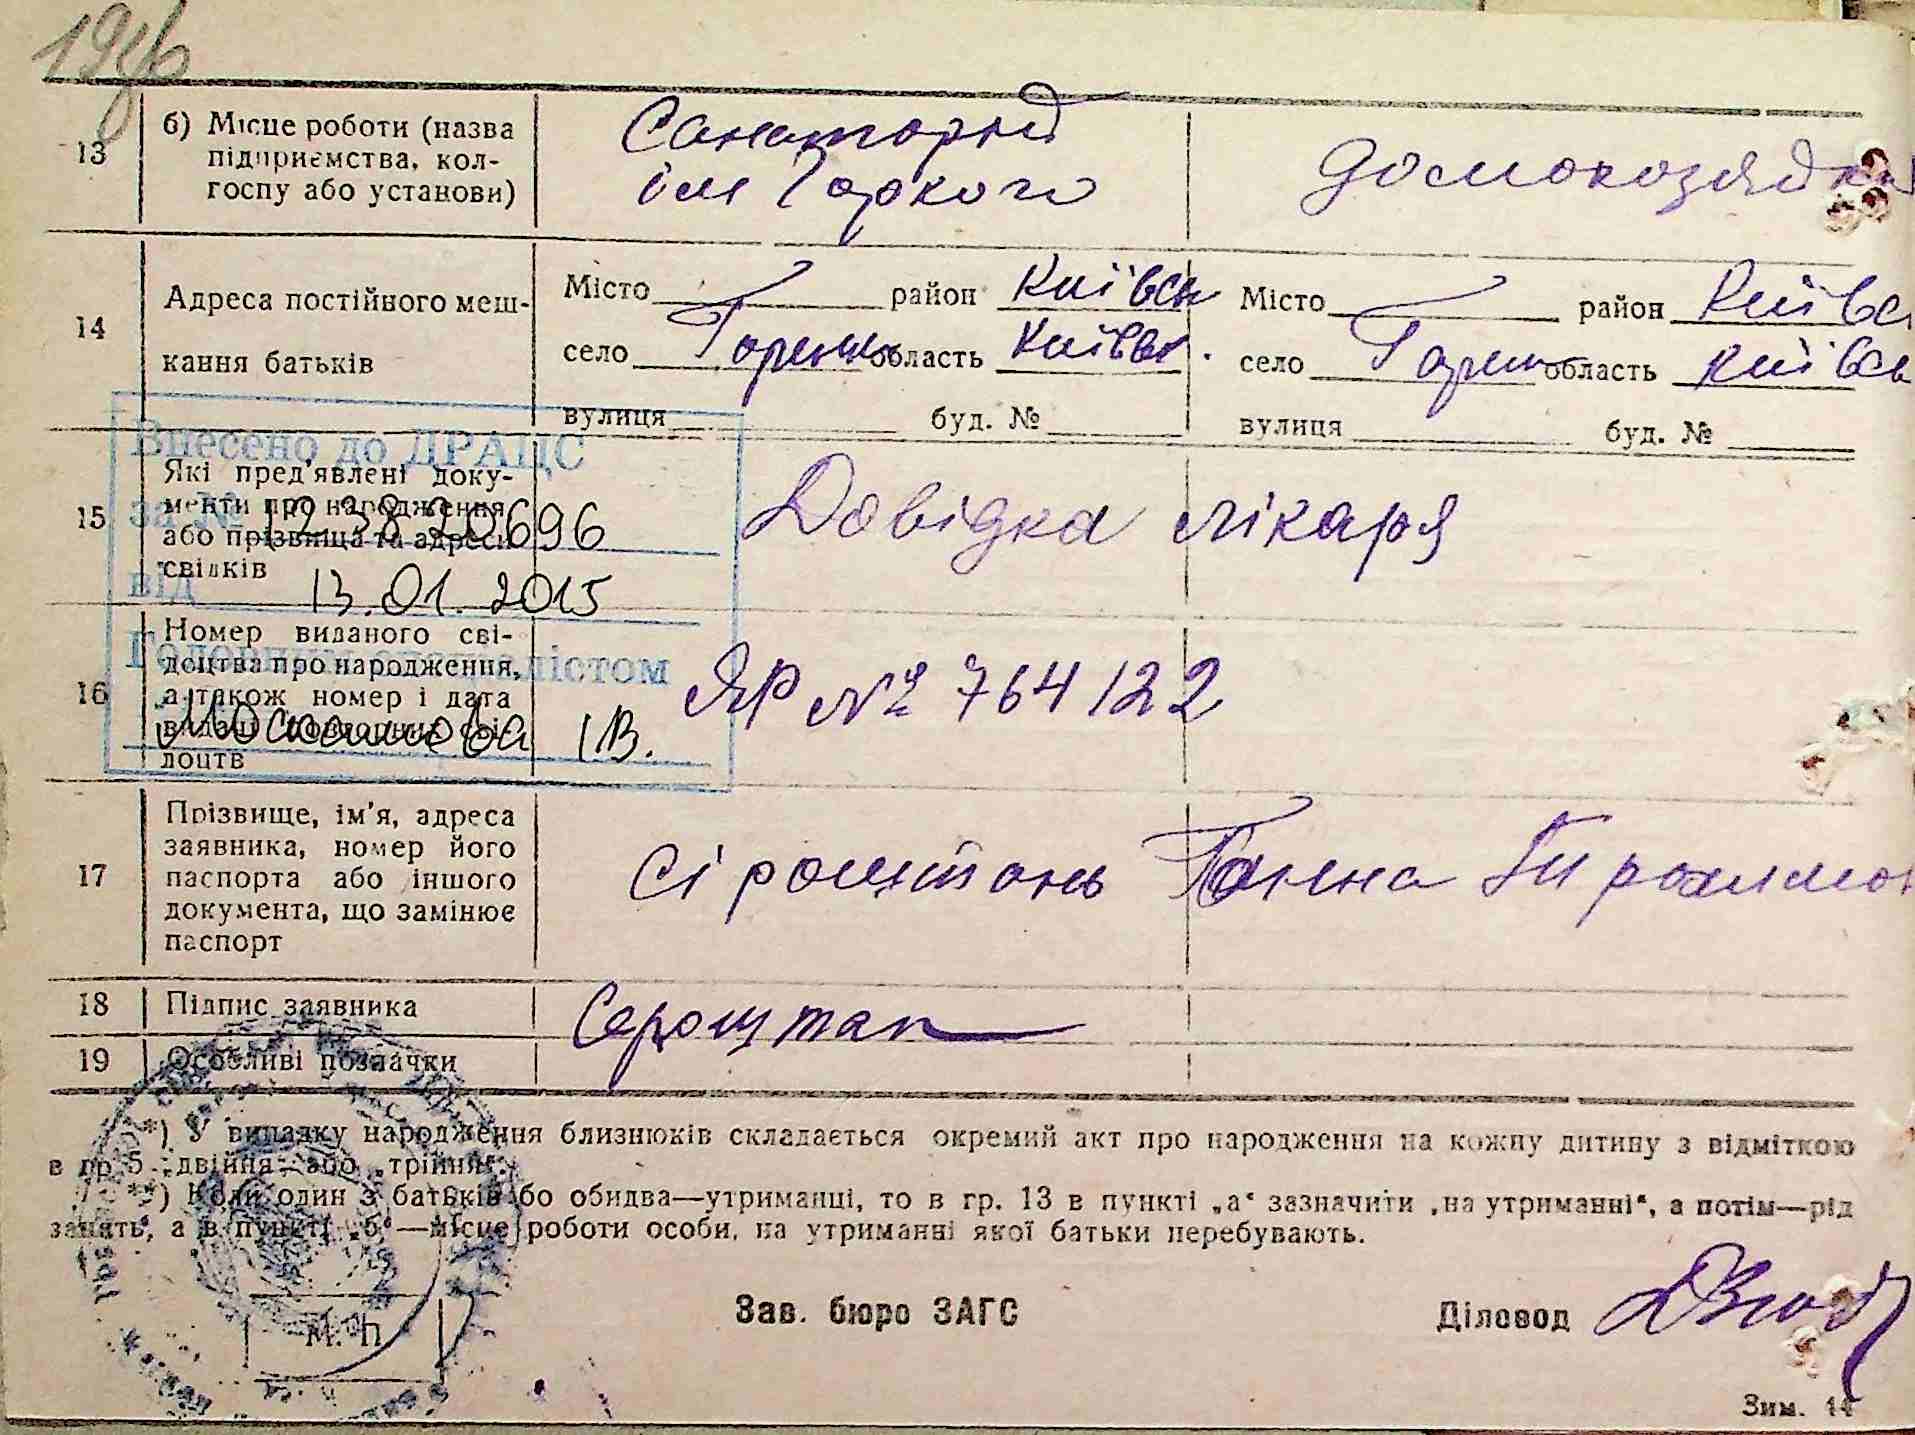 1946
13 б) Місце роботи (назва підприємства, колгоспу або установи)
Санаторий
ім Горкого
домохозядка
14 Адреса постійного мешкання батьків
Місто район Київськ
село Горен область Київськ.
вулиця буд. №
Місто район Київсь
село Горен область Київсь
вулиця буд. №
Внесено до ДРАЦС
за № 12 38 20696
від 13.01.2015
Головним спеціалістом
15 Які пред'явлені документи про народження або прізвища та адреси свідків
Довідка лікаря
16 Номер виданого свідоцтва про народження, а також номер і дата
доцтв
ЯР № 764122
17 Прізвище, ім'я, адреса заявника, номер його паспорта або іншого документа, що замінює паспорт
Сірощтань Ганна Трохимов
18 Підпис заявника
Серощтан
19 Особливі позначки
*) У випадку народження близнюків складається окремий акт про народження на кожну дитину з відміткою
в гр. 5 „двійня“ або „трійня“.
**) Коли один з батьків або обидва—утриманці, то в гр. 13 в пункті „а“ зазначити „на утриманні“, а потім—рід
занять, а в пункті „б“—місце роботи особи, на утриманні якої батьки перебувають.
М. П.
Зав. бюро ЗАГС
Діловод
Зим. 14